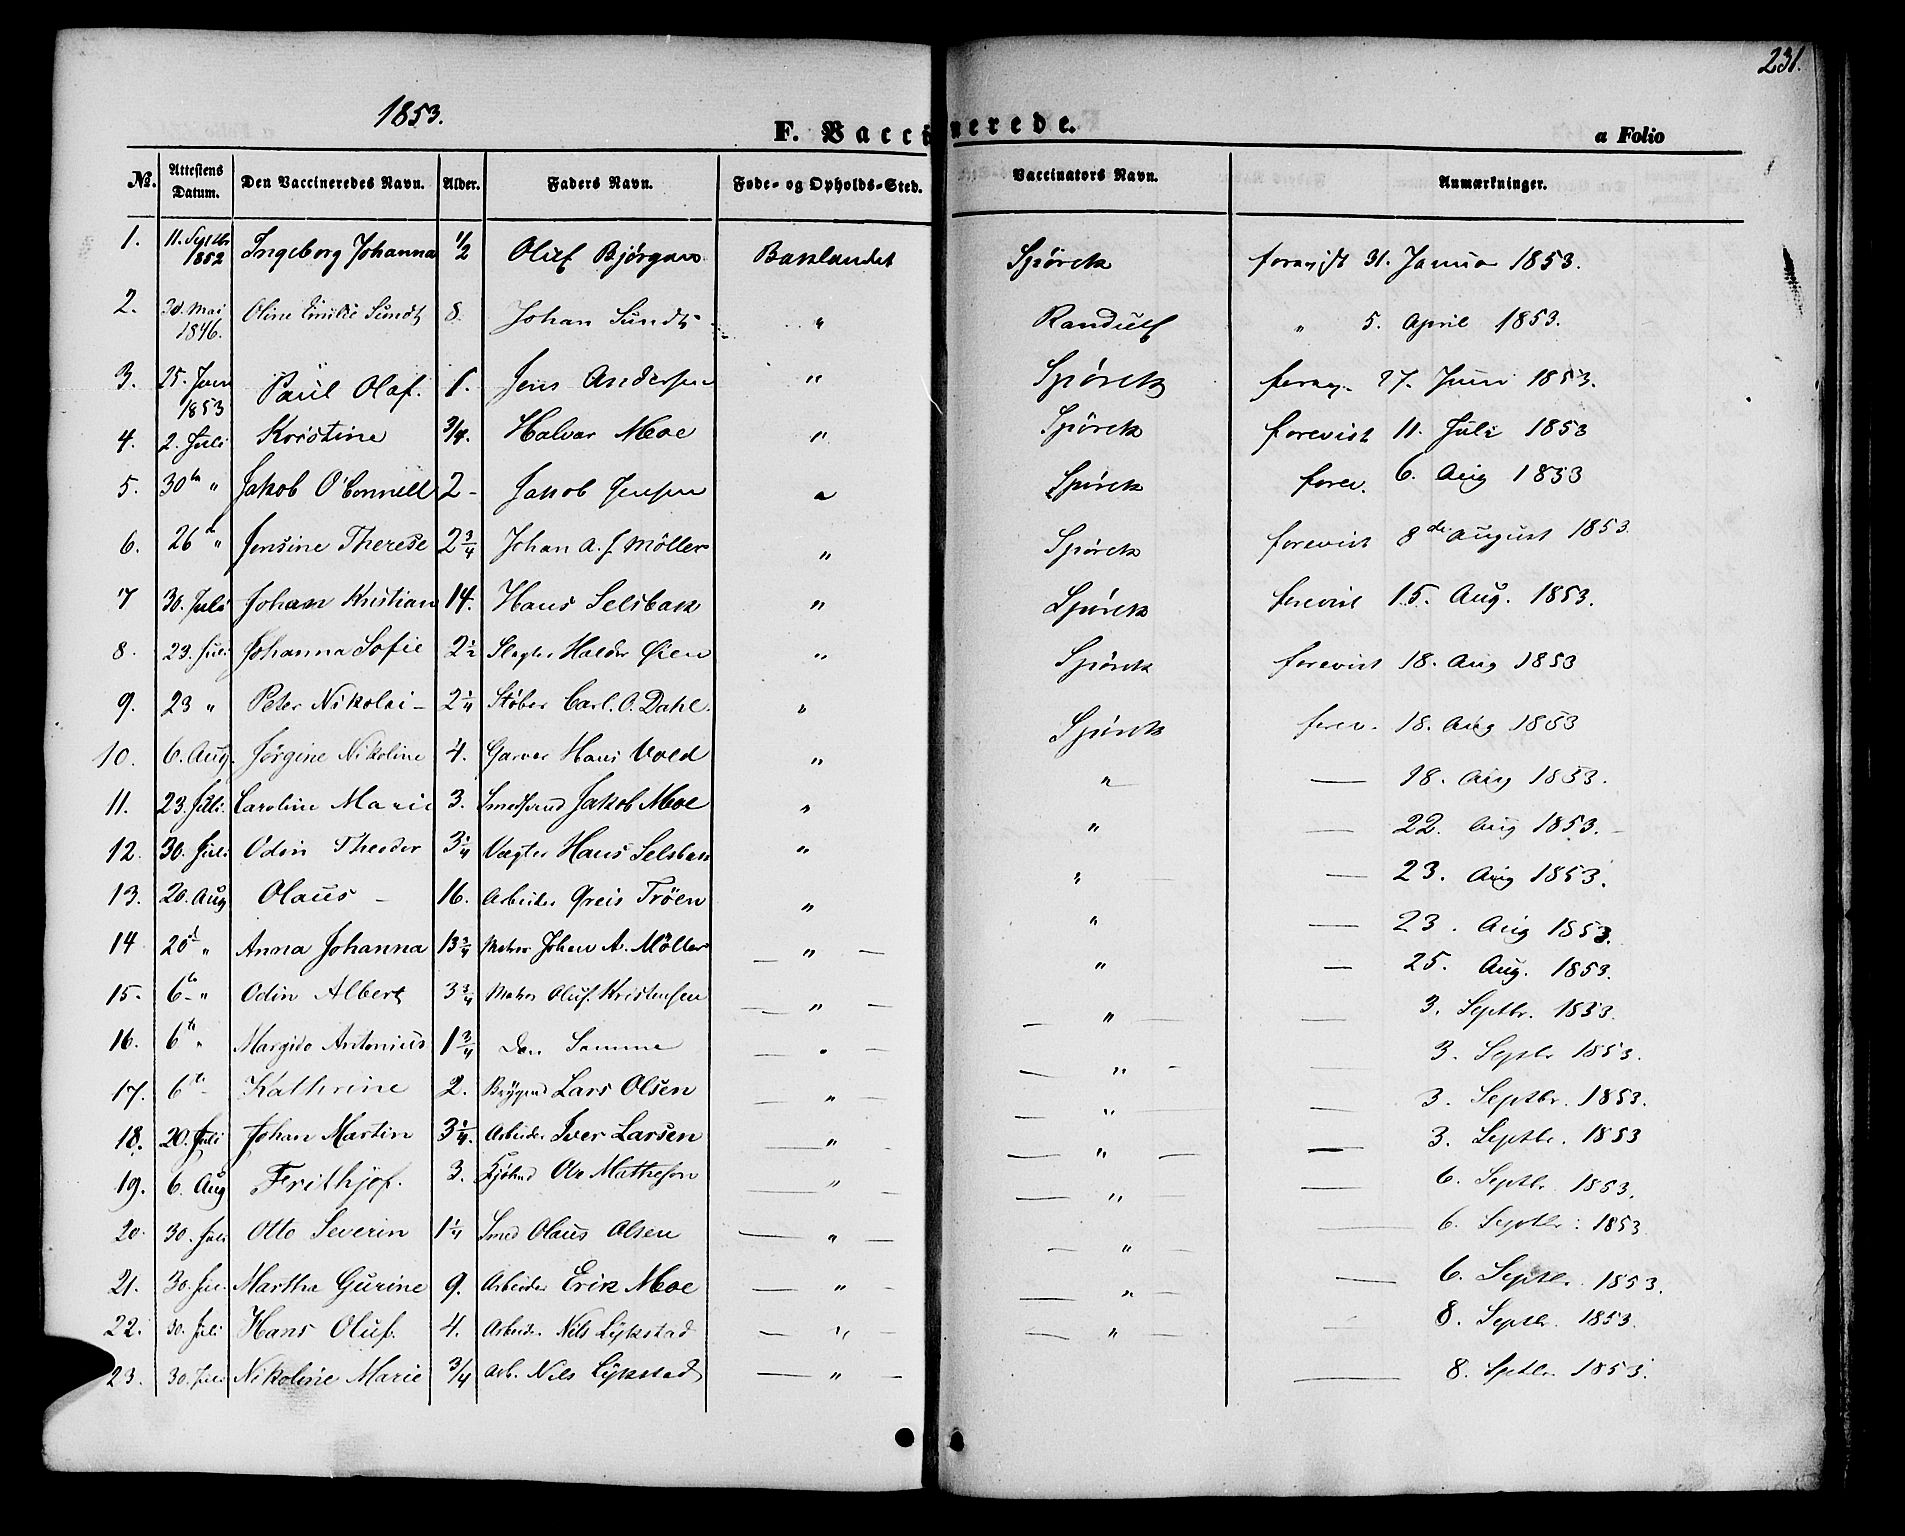 231.
1853.
F. Vaccinerede.
a Folio
No. Attestens Datum. Den Vaccineredes Navn. Alder. Faders Navn. Føde- og Opholds-Sted. Vaccinators Navn. Anmærkninger.
1. 11. Septbr 1852 Ingeborg Johanna 1/2 Oluf Bjørgum Baklandet Spörck forevist 31. Januar 1853.
2. 30. Mai 1846. Oline Emilie Sundt 8. Johan Sundt " Randulf " 5. April 1853.
3. 25. Juni 1853 Paul Olaf. 1. Jens Andersen " Spörck forev. 27. Juni 1853.
4. 2. Juli Kristine 3/4. Halvar Moe " Spörck forevist 11. Juli 1853
5. 30te " Jakob O'Connell 2 - Jakob Jensen " Spörck forev. 6. Aug 1853
6. 26d " Jensine Therese 2 3/4 Johan A. J. Möller " Spörck forevist 8de August 1853.
7 30. Juli Johan Kristian 14. Hans Selsbak " Spörck forevist 15. Aug. 1853.
8. 23. Juli Johanna Sofie 2 1/2 Slagter Haldr Øien " Spörck forevist 18. Aug 1853
9. 23 " Peter Nikolai - 2 1/4 Støber Carl. O. Dahl. " Spörck forev. 18. Aug 1853
10. 6. Aug. Jørgine Nikoline 4. Garver Hans Vold " " — 18. Aug 1853.
11. 23. Juli. Caroline Marie 3. Smedsvend Jakob Moe " " — 22. Aug 1853. -
12. 30. Juli Odin Theodor 3 1/4 Vægter Hans Selsbak " " — 23. Aug 1853.
13. 20. Aug Olaus - 16. Arbeider Greis Trøen " " — 23. Aug 1853.
14 20d " Anna Johanna 13 3/4 Matros Johan A. Möller — " — " — 25. Aug. 1853.
15. 6te " Odin Albert 3 3/4 Matros Oluf Kristensen — " — — " — — 3. Septbr. 1853.
16. 6te " Margido Antonius 1 3/4 Den Samme — " — — " — — 3. Septbr 1853.
17. 6te - Kathrine 2. Brygmd Lars Olsen — " — — " — — 3. Septbr. 1853.
18. 20. Juli Johan Martin 3 1/4. Arbeider Iver Larsen — " — — " — — 3. Septbr. 1853
19. 6. Aug Frithjof. 3. Ole Matheson — " — — " — — 6. Septbr. 1853.
20. 30. Juli Otto Severin 1 1/4 Smed Olaus Olsen — " — — " — — 6. Septbr: 1853.
21. 30. Jul. Martha Gurine 9. Arbeider Erik Moe — " — — " — — 6. Septbr. 1853.
22. 30. Juli Hans Oluf. 4. Arbeider Nils Lykstad — " — — " — — 8. Septbr. 1853.
23. 30. Juli Nikoline Marie 3/4 Arb. Nils Lykstad — " — — 8. Septbr 1853.